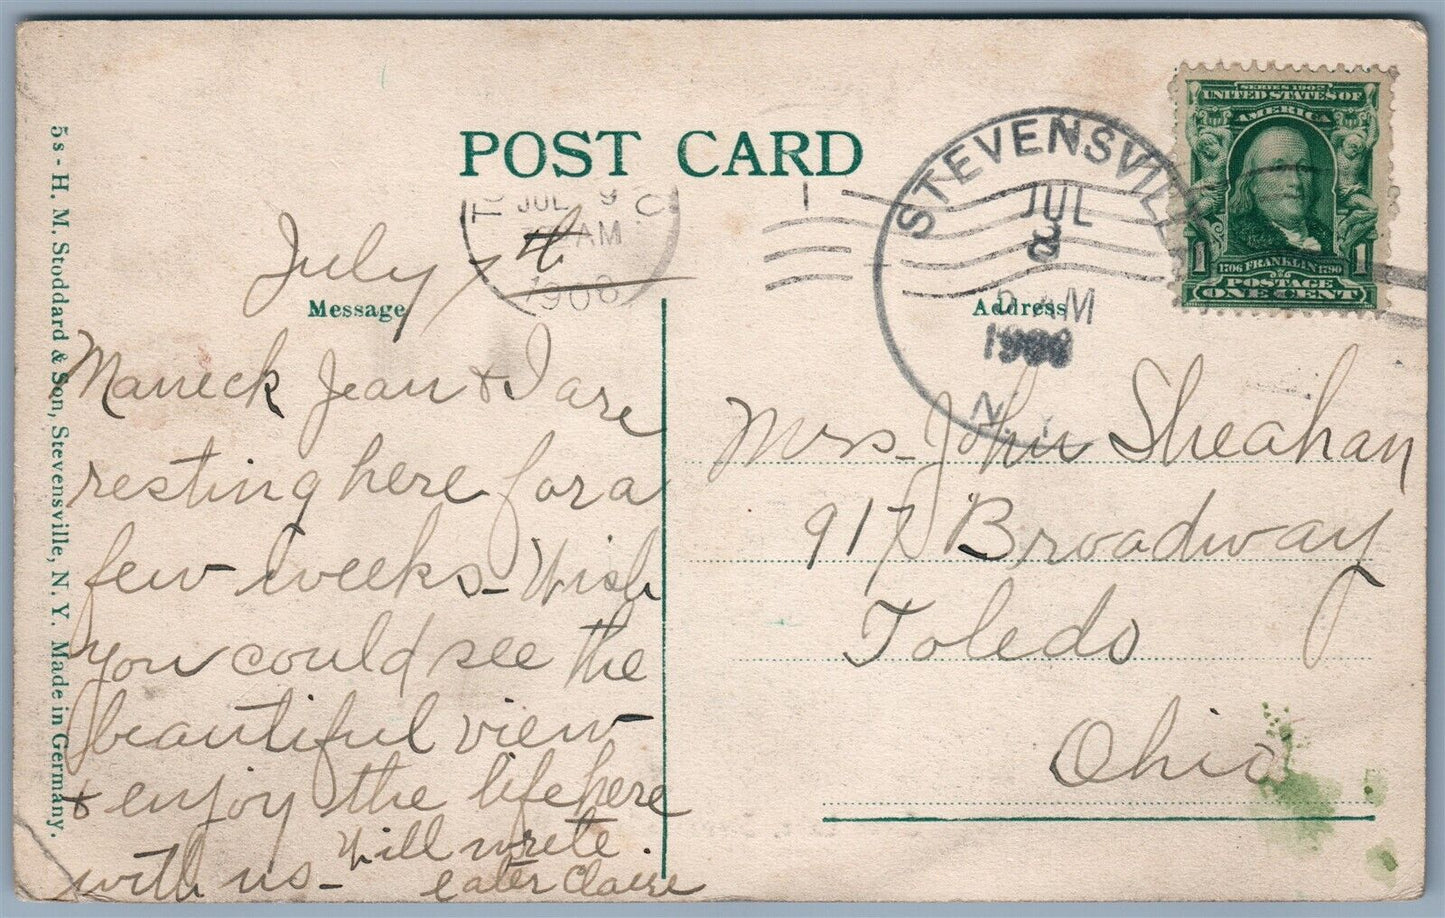 POST CARD
TO
JUL 9
AM
1908
O
1
STEVENSVILLE
JUL
8
M
1908
N.Y.
SERIES 1902
UNITED STATES OF
AMERICA
1706 FRANKLIN 1790
1 1
POSTAGE
ONE CENT
July 7th
Message
Maneck Jean & I are
resting here for a
few weeks - Wish
you could see the
beautiful view
& enjoy the life here
with us -
Will write
later Claire
Address
Mrs. John Sheahan
917 Broadway
Toledo
Ohio
5s - H. M. Stoddard & Son, Stevensville, N. Y. Made in Germany.